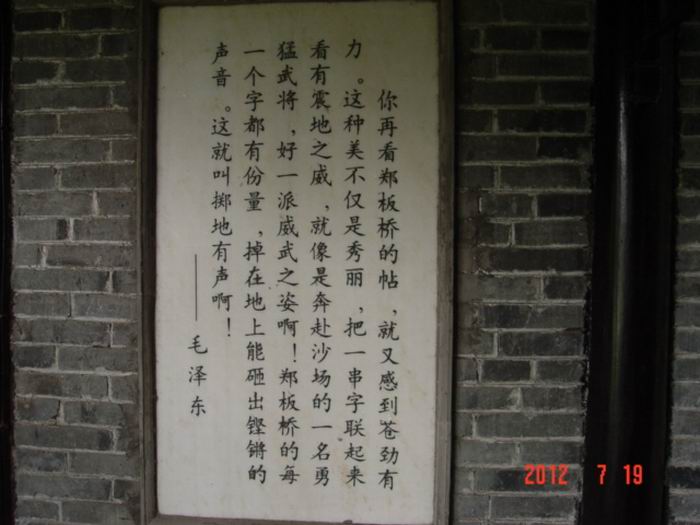 你再看郑板桥的帖，就又感到苍劲有
力。这种美不仅是秀丽，把一串字联起来
看有震地之威，就像是奔赴沙场的一名勇
猛武将，好一派威武之姿啊！郑板桥的每
一个字都有份量，掉在地上能砸出铿锵的
声音。这就叫掷地有声啊！
——毛泽东
2012 7 19